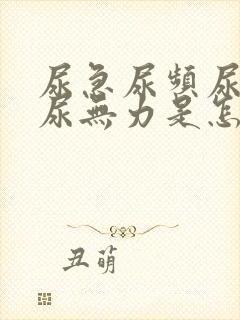 尿急尿頻尿
尿無力是怎
丑萌